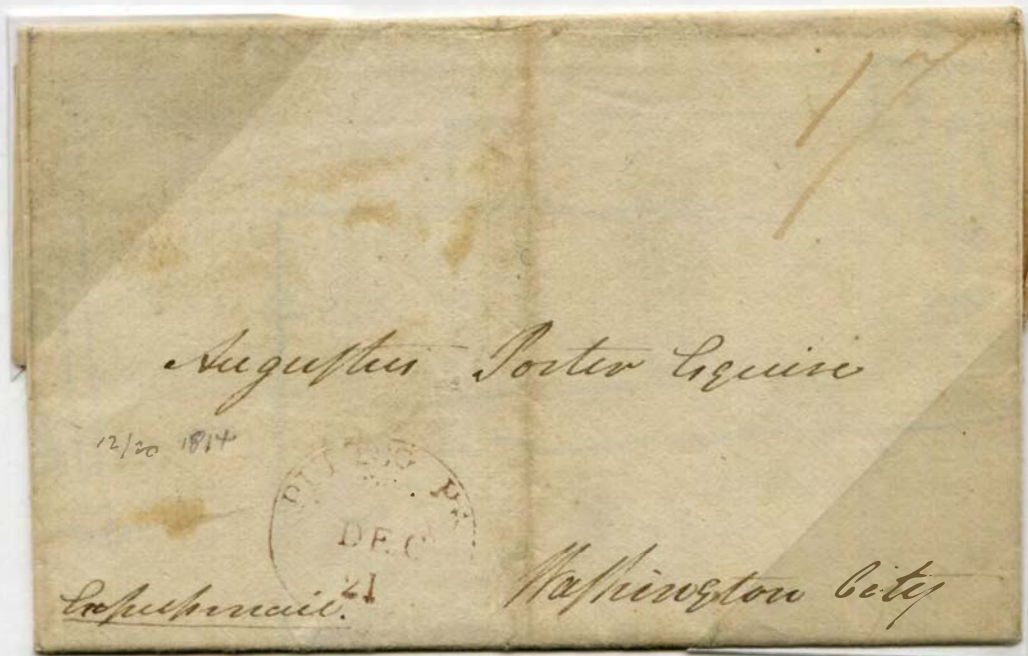 17
Augustus Porter Esquire
12/20 1814
PITTSG PA.
DEC
21
Washington City
Expressmail.